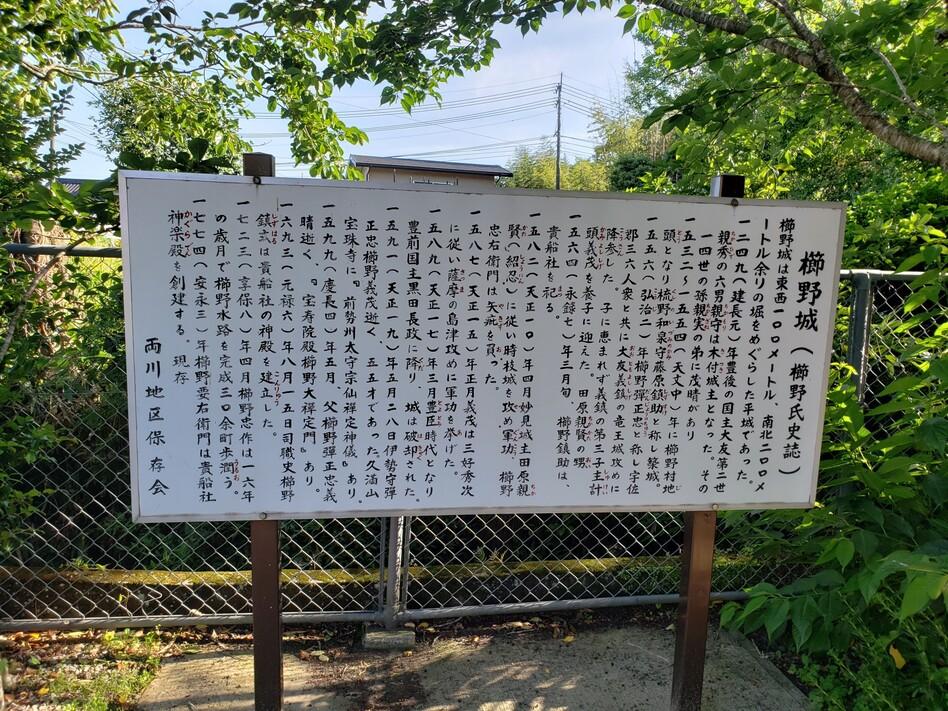 櫛野城（櫛野氏史誌）
櫛野城は東西一〇〇メートル、南北二〇〇メ
ートル余りの堀をめぐらした平城であった。
一二四九（建長元）年豊後の国主大友第二世
親秀の六男親守は木付城主となった。その
一四世の孫親実の弟に茂晴があり
一五三二～一五五四（天文中）年に櫛野村地
頭となり梳野和泉守藤原鎮助と称し築城。
一五五六（弘治二）年櫛野弾正忠と称し宇佐
郡三六人衆と共に大友義鎮の竜王城攻めに
降参した。子に恵まれず義鎮の第三子主計
頭義茂を養子に迎えた。田原親賢の甥
一五六四（永録七）年三月旬 櫛野鎮助は、
貴船社を祀る。
一五八二（天正一〇）年四月妙見城主田原親
賢（紹忍）に従い時枝城を攻め軍功、櫛野
忠右衛門は矢疵を負った。
一五八七（天正一五）年正月義茂は三好秀次
に従い薩摩の島津攻めに軍功を挙げた。
一五八九（天正一七）年三月豊臣時代となり
豊前国主黒田長政に降り 城は破却された。
一五九一（天正一九）年五月二八日伊勢守弾
正忠櫛野義茂逝く 五五才であった久涌山
宝珠寺に『前勢州太守宗仙禅定神儀』あり。
一五九九（慶長四）年五月 父櫛野弾正忠義
晴逝く、『宝寿院殿櫛野大禅定門』あり。
一六九三（元禄六）年八月一五日司職史櫛野
鎮弌は貴船社の神殿を建立した。
一七二三（享保八）年四月櫛野忠作は一六年
の歳月で櫛野水路を完成三〇余町歩潤う。
一七七四（安永三）年櫛野要右衛門は貴船社
神楽殿を創建する。現存
両川地区保存会